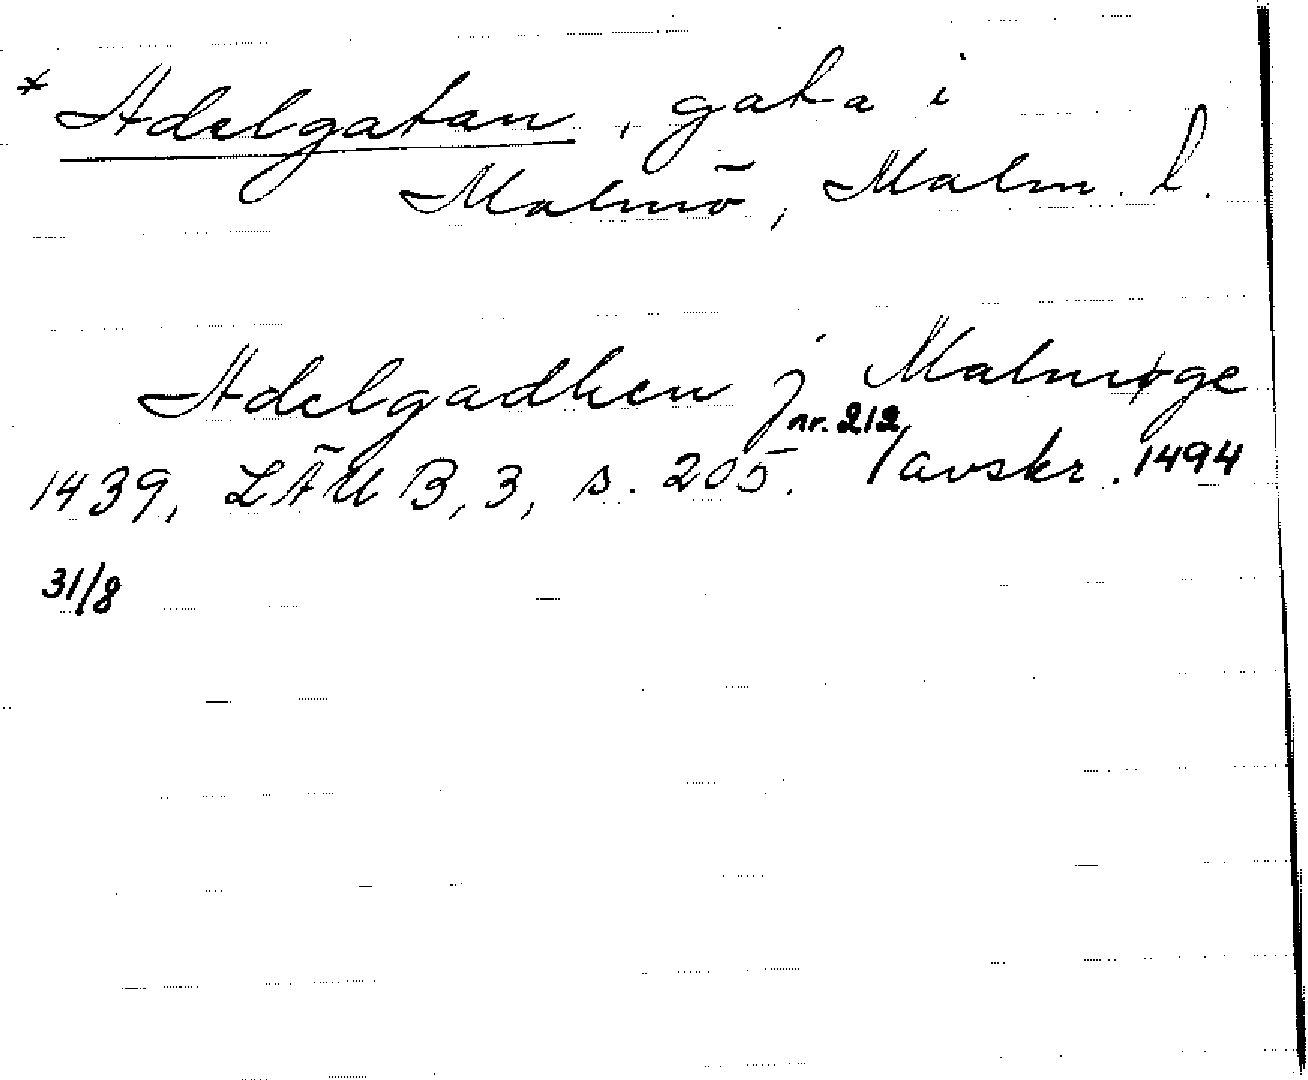 * Adelgatan, gata i
Malmö, Malm. l.
Adelgadhen j Malmøge
nr. 212
1439, LÄUB, 3, s. 205. /avskr. 1494
31/8